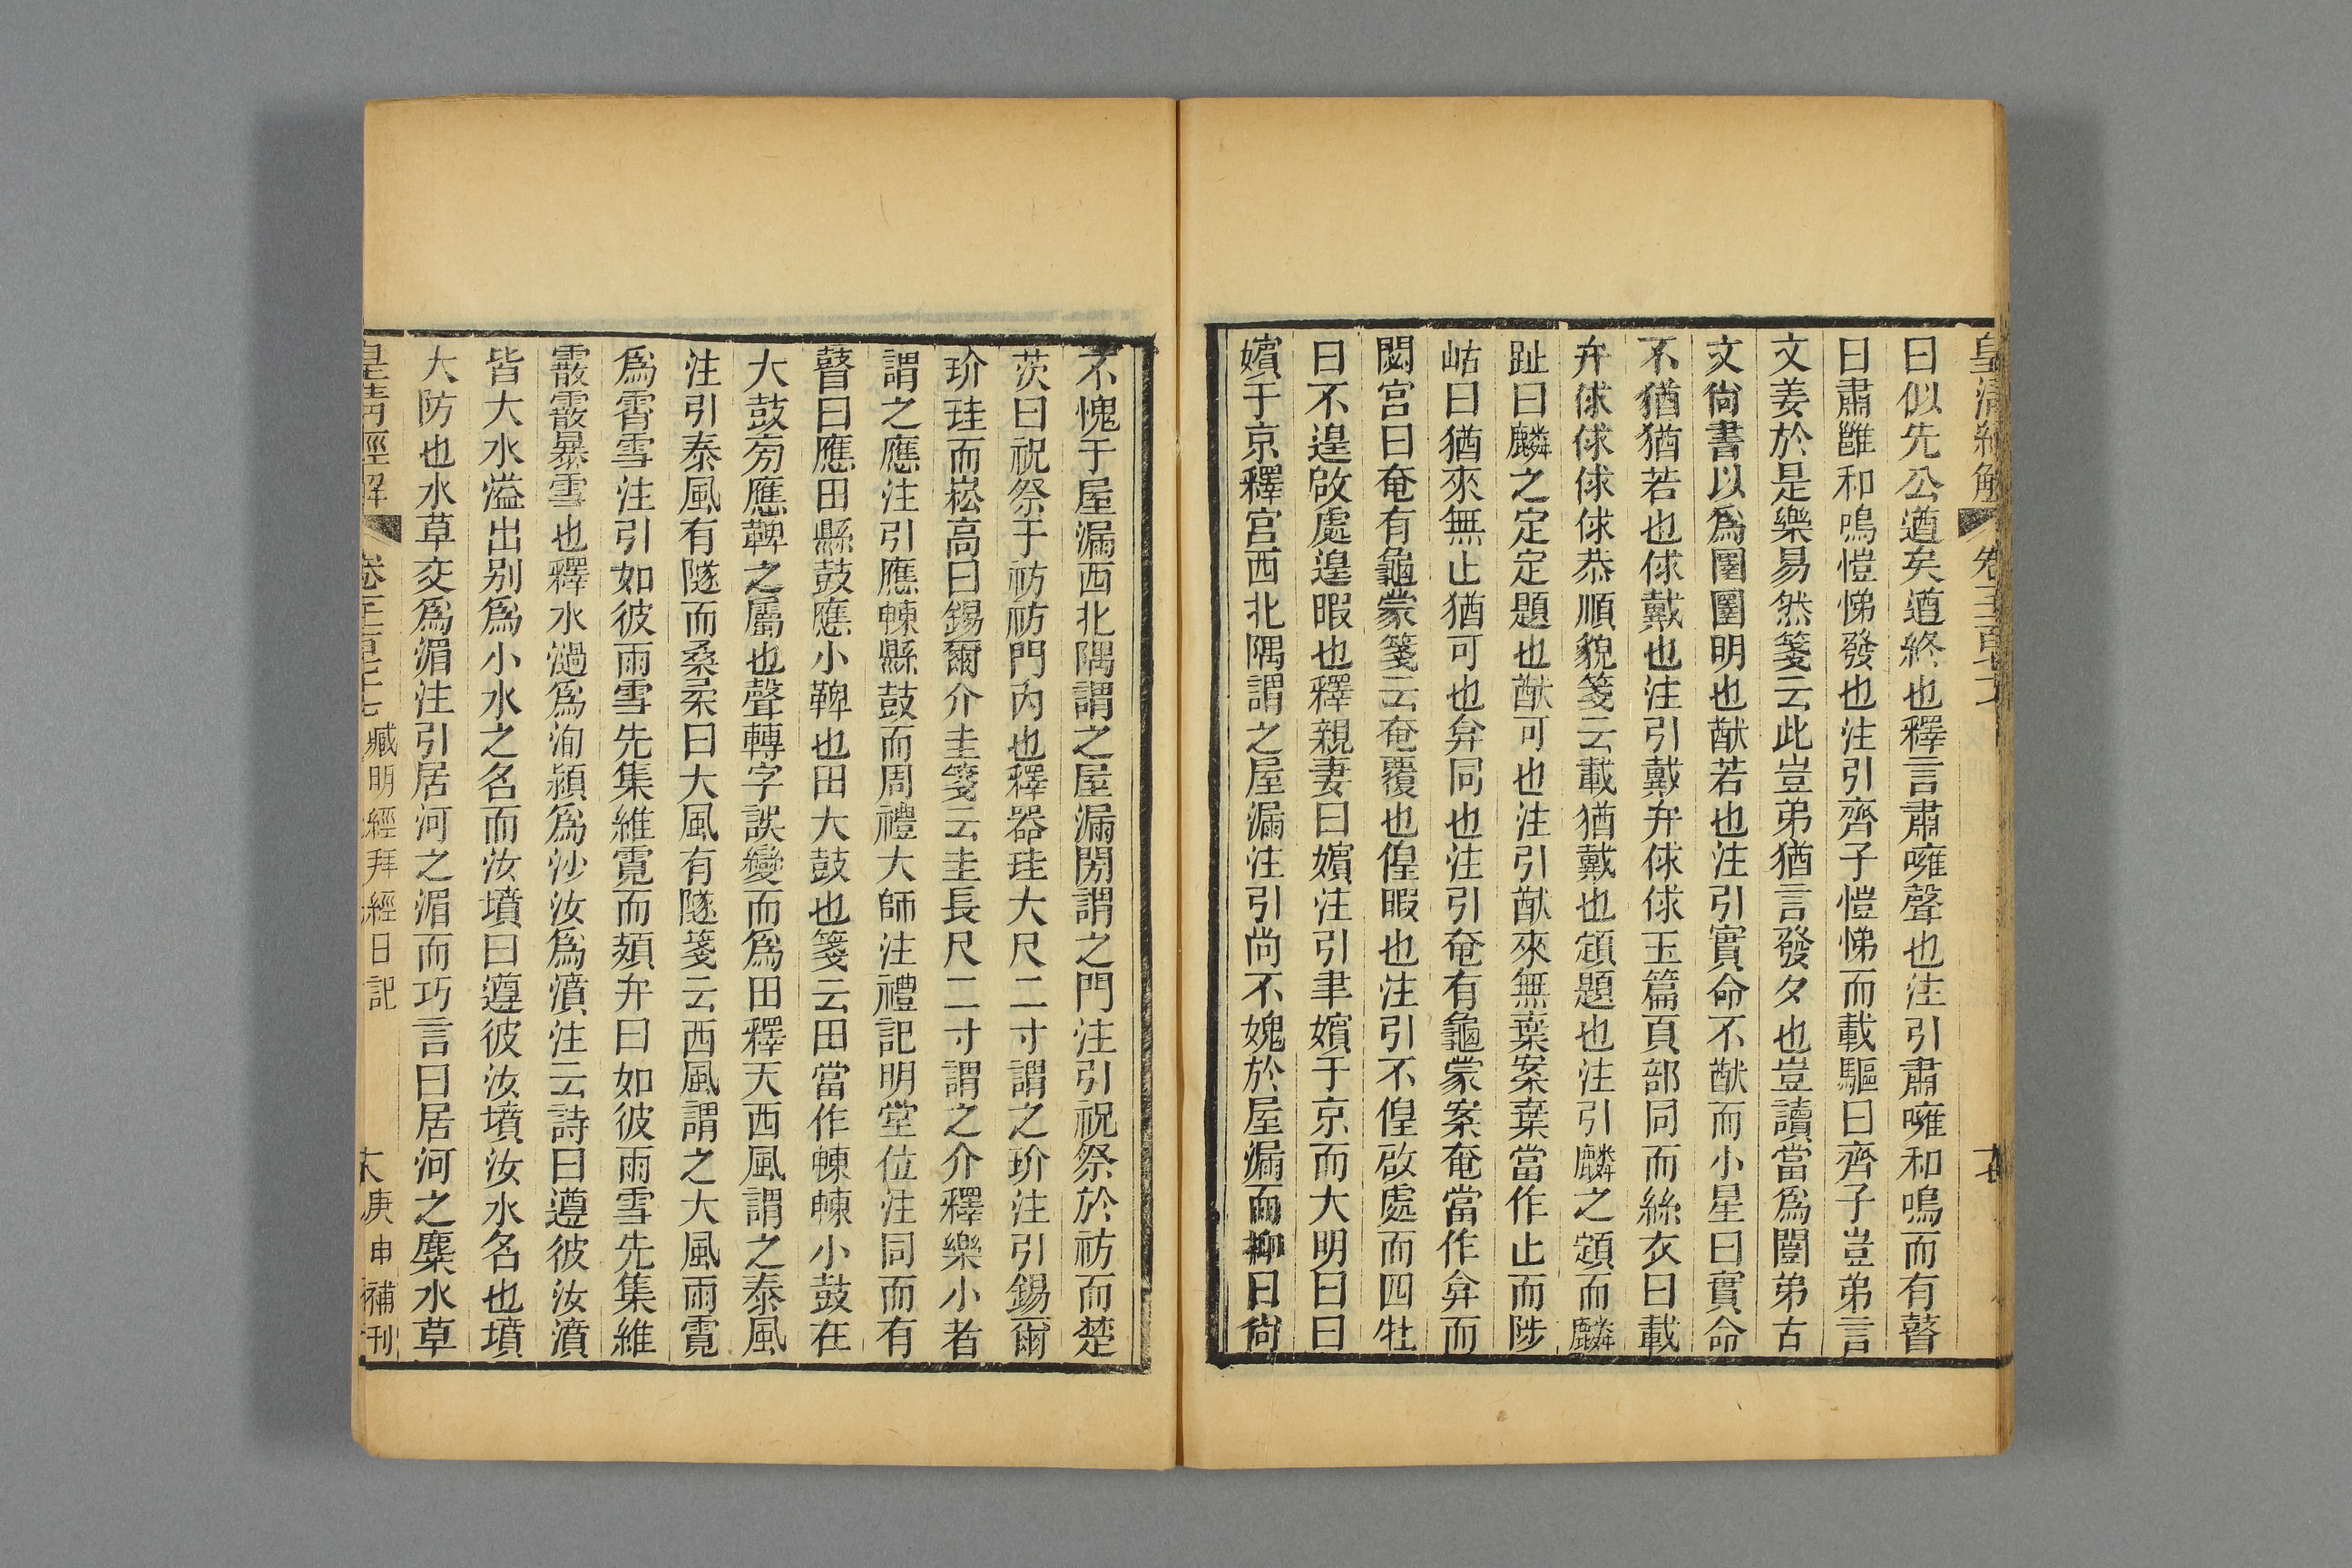 皇清經解 卷一千一百七十
曰似先公遒矣遒終也釋言肅噰聲也注引肅噰和鳴而有瞽
曰肅雝和鳴愷悌發也注引齊子愷悌而載驅曰齊子豈弟言
文姜於是樂易然箋云此豈弟猶言發夕也豈讀當爲闓弟古
文尙書以爲圛圛明也猷若也注引實命不猷而小星曰實命
不猶猶若也俅戴也注引戴弁俅俅玉篇頁部同而絲衣曰載
弁俅俅俅俅恭順貌箋云載猶戴也顁題也注引麟之顁而麟
趾曰麟之定定題也猷可也注引猷來無棄案棄當作止而陟
岵曰猶來無止猶可也弇同也注引奄有龜蒙案奄當作弇而
閟宮曰奄有龜蒙箋云奄覆也偟暇也注引不偟啟處而四牡
曰不遑啟處遑暇也釋親妻曰嬪注引聿嬪于京而大明曰曰
嬪于京釋宮西北隅謂之屋漏注引尚不媿於屋漏而抑曰尙
不愧于屋漏西北隅謂之屋漏閍謂之門注引祝祭於祊而楚
茨曰祝祭于祊祊門內也釋器珪大尺二寸謂之玠注引錫爾
玠珪而崧高曰錫爾介圭箋云圭長尺二寸謂之介釋樂小者
謂之應注引應朄縣鼓而周禮大師注禮記明堂位注同而有
瞽曰應田縣鼓應小鞞也田大鼓也箋云田當作朄朄小鼓在
大鼓旁應鞞之屬也聲轉字誤變而爲田釋天西風謂之泰風
注引泰風有隧而桑柔曰大風有隧箋云西風謂之大風雨霓
爲霄雪注引如彼雨雪先集維霓而頍弁曰如彼雨雪先集維
霰霰暴雪也釋水濄爲洵潁爲沙汝爲濆注云詩曰遵彼汝濆
皆大水溢出别爲小水之名而汝墳曰遵彼汝墳汝水名也墳
大防也水草交爲湄注引居河之湄而巧言曰居河之麋水草
皇清經解 卷一千一百七十 臧明經拜經日記 庚申補刊